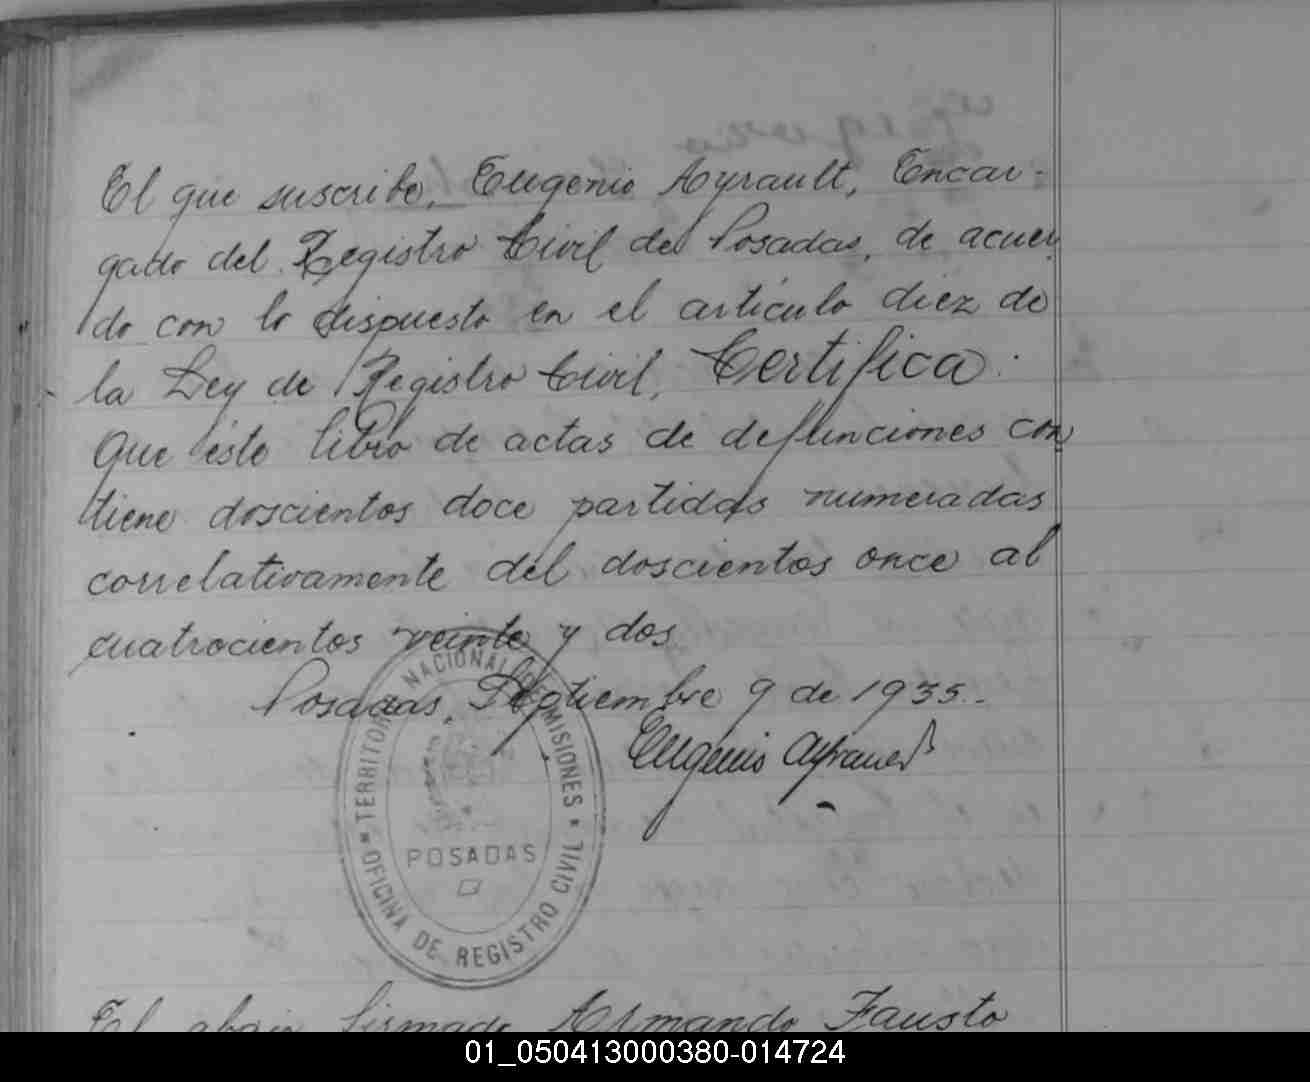 El que suscribe, Eugenio Ayrault, Encar-
gado del Registro Civil de Posadas, de acuer
do con lo dispuesto en el artículo diez de
la Ley de Registro Civil, Certifica:
Que éste libro de actas de defunciones con
tiene doscientos doce partidas numeradas
correlativamente del doscientos once al
cuatrocientos veinte y dos
Posadas, Septiembre 9 de 1935.-
Eugenio Ayrault
TERRITORIO NACIONAL DE MISIONES
POSADAS
* OFICINA DE REGISTRO CIVIL *
El abajo firmado Armando Fausto
01_050413000380-014724